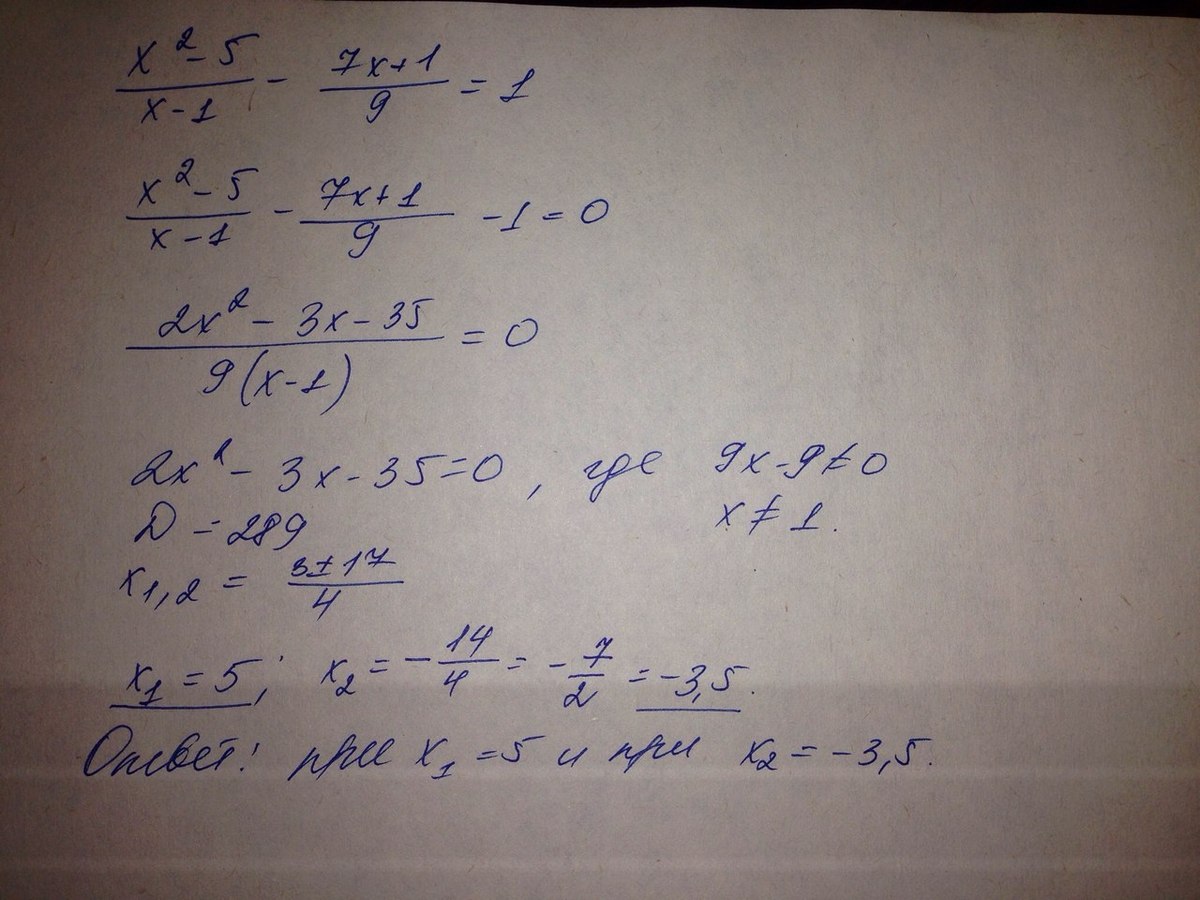 x² - 5 / x - 1 - 7x + 1 / 9 = 1
x² - 5 / x - 1 - 7x + 1 / 9 - 1 = 0
2x² - 3x - 35 / 9(x - 1) = 0
2x² - 3x - 35 = 0, где 9x - 9 ≠ 0
D = 289 x ≠ 1.
x1,2 = 3 ± 17 / 4
x1 = 5; x2 = - 14 / 4 = - 7 / 2 = -3,5.
Ответ: при x1 = 5 и при x2 = -3,5.